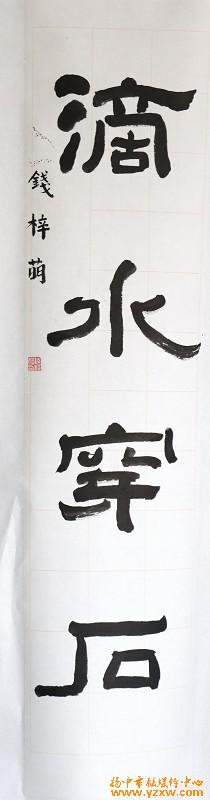 滴水穿石
錢梓萌
扬中市融媒体中心
www.yzxw.com